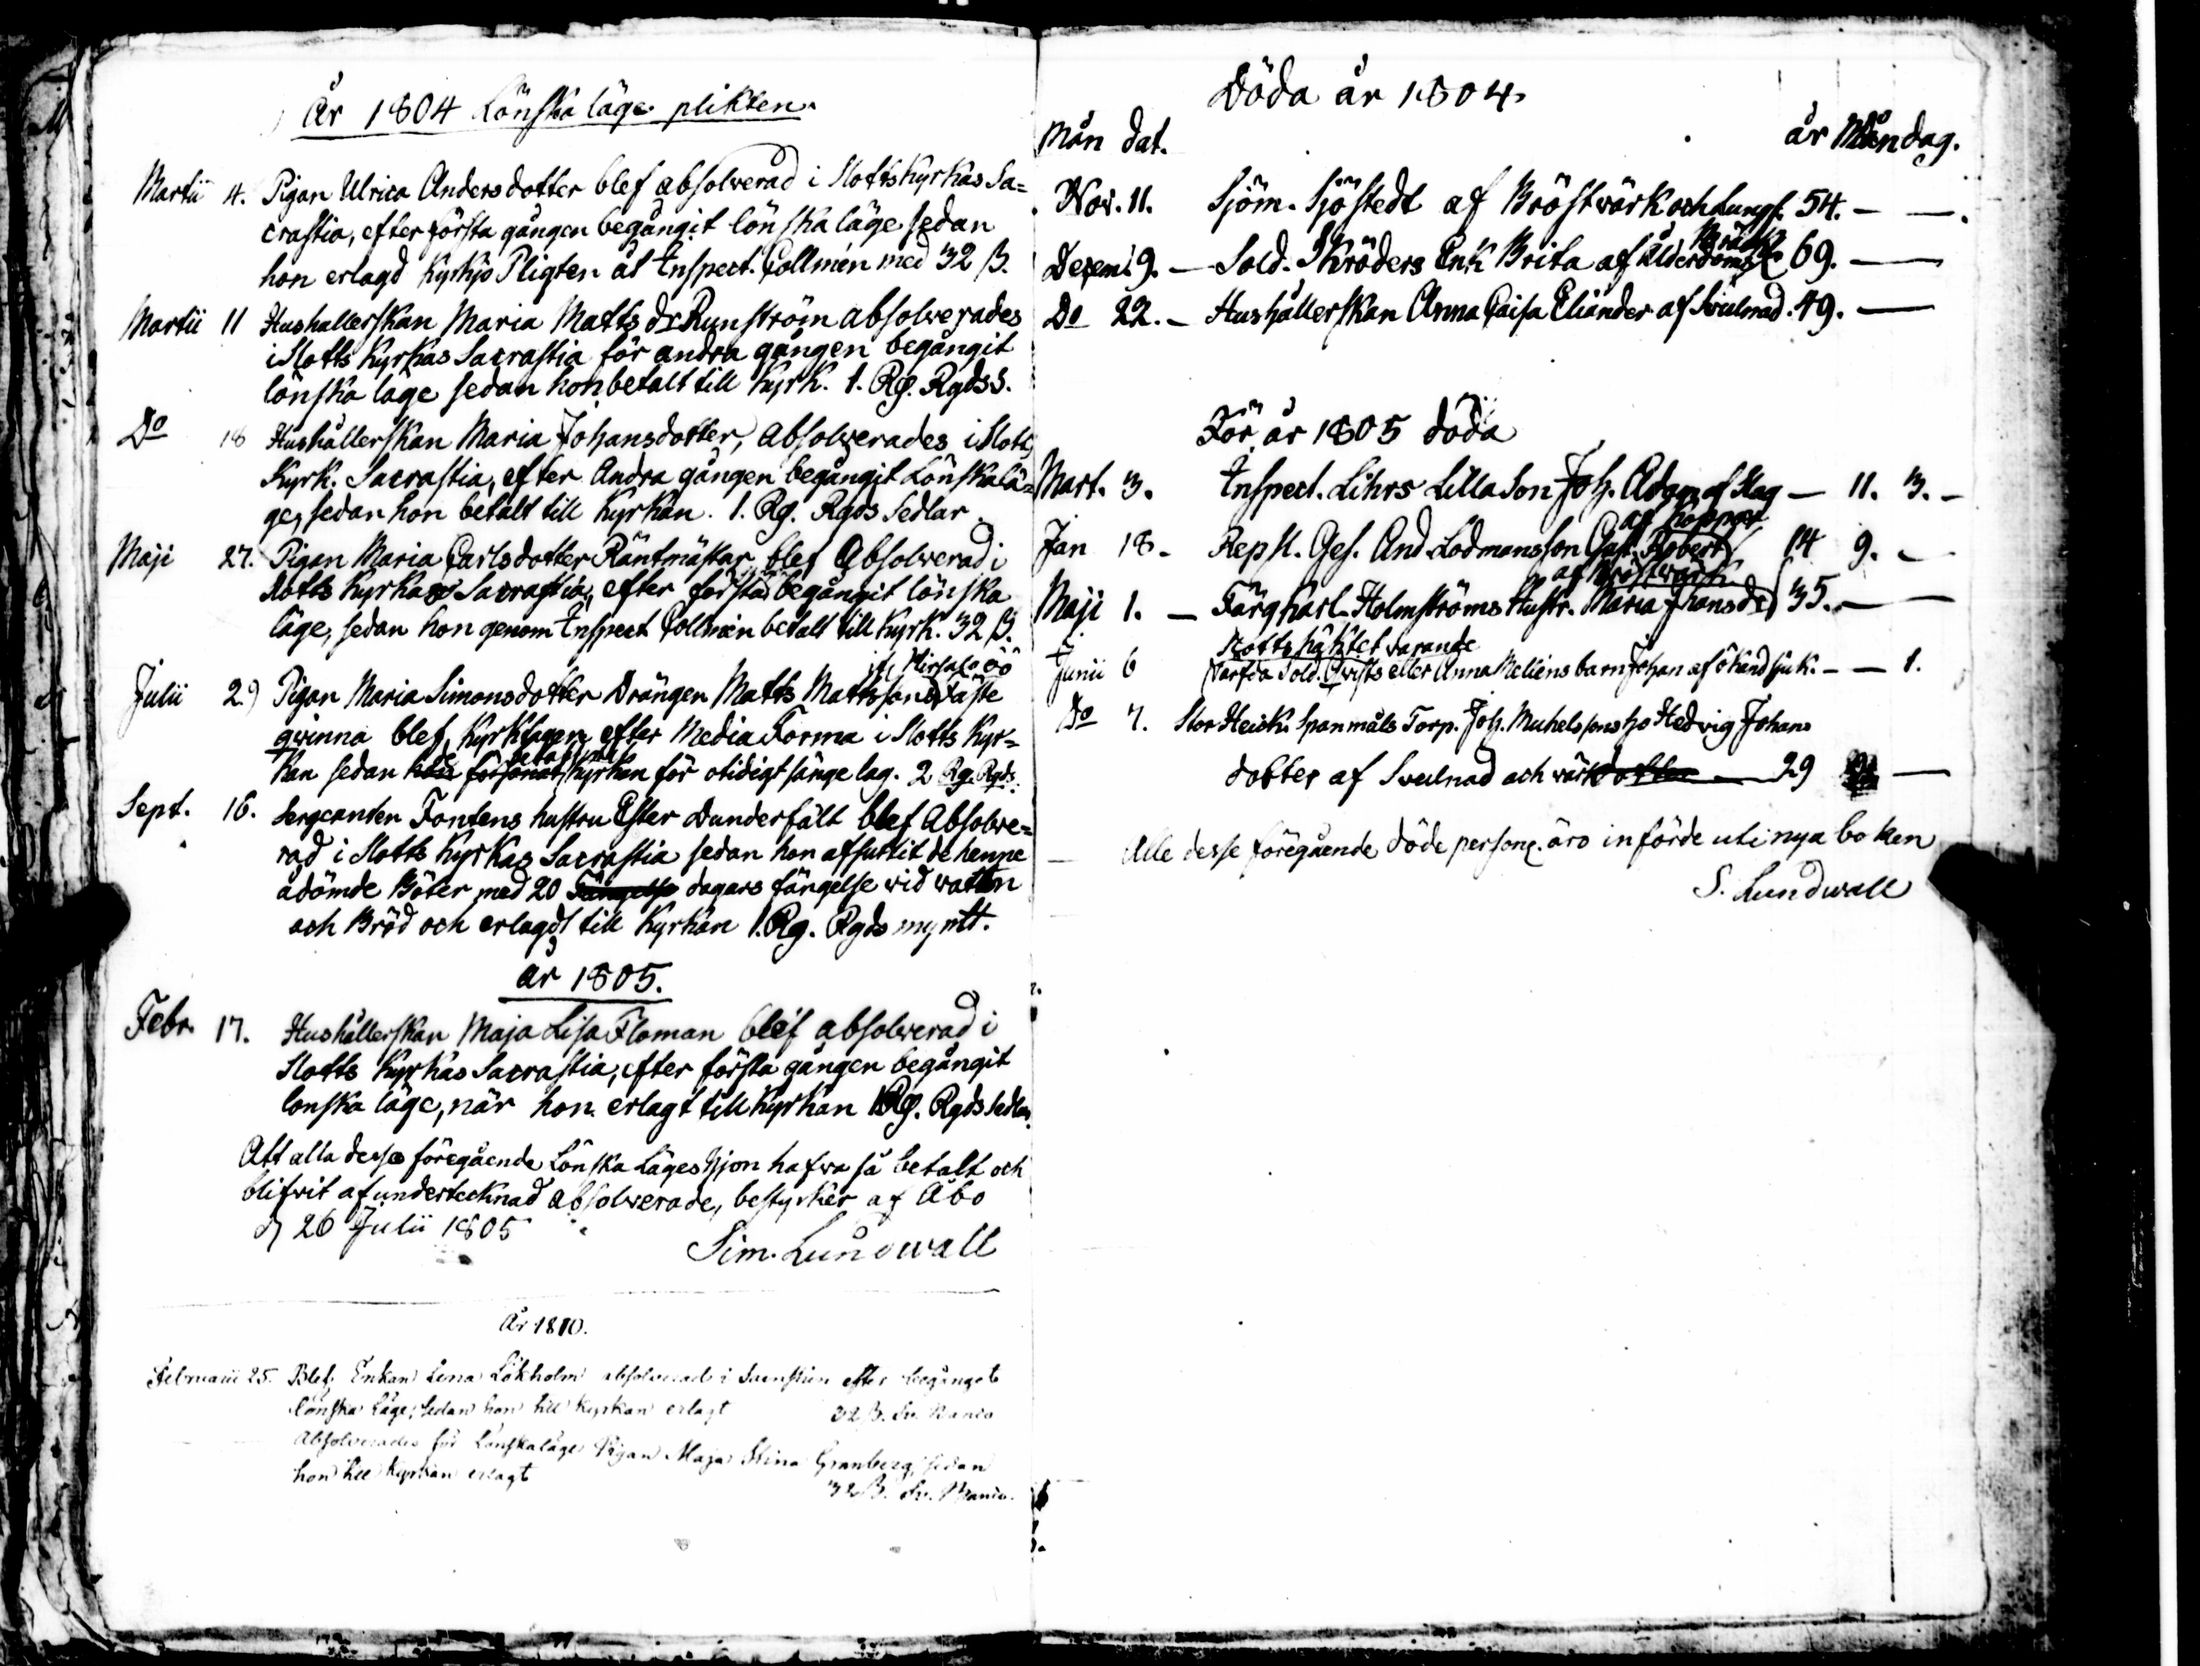 År 1804 Lönska läge plikten.
Martii 4. Pigan Ulrica Andersdotter blef absolverad i Slotts Kyrkas Sa=
crastia, efter första gången begångit lönska läge sedan
hon erlagd Kyrkjo Pligten åt Inspect. Collmén med 32 ß.
Martii 11 Hushallerskan Maria Matts dr Runström absolverades
i Slotts Kyrkas Sacrastia för andra gången begångit
lönska läge sedan hon betalt till Kyrk. 1. Rg. Rgds S.
Do 18 Hushållerskan Maria Johansdotter, Absolverades i Slott
Kyrk. Sacrastia, efter Andra gången begångit Lönskalä=
ge, sedan hon betalt till Kyrkan. 1. Rg. Rgds Sedlar.
Maji 27. Pigan Maria Carlsdotter Räntmästar blef Absolverad i
Slotts Kyrkas Sacrastia, efter första begångit lönska
läge, sedan hon genom Inspect Collmén betalt till Kyrk. 32 ß.
Julii 29 Pigan Maria Simonsdotter Drängen Matts Mattssons Fäste
qvinna blef Kyrktagen efter Media Forma i Slotts Kyr=
kan sedan försonat Kyrkan för otidigt sänge lag. 2 Rg. Rgds.
Sept. 16. Sergeanten Fontens hustru Ester Dunderfält blef Absolve=
rad i Slotts Kyrkas Sacrastia sedan hon afsuttit de henne
ådömde Böter med 20 Fängelse dagars fängelse vid vatten
och Bröd och erlagdt till Kyrkan 1. Rg. Rgds myntt.
År 1805.
Febr. 17. Hushållerskan Maja Lisa Floman blef absolverad i
Slotts Kyrkas Sacrastia, efter första gången begångit
lönska läge, när hon erlagt till Kyrkan 1 Rg. Rgds Sedlar.
Att alla desse föregående Lönska Läges hjon hafva så betalt och
blifvit af undertecknad absolverade, bestyrker af Åbo
d 26 Julii 1805
Sim. Lundwall
År 1810.
Februarii 25. Blef Enkan Lena Lökholm absolverad i Sacristian efter begånget
lönska läge, sedan hon till Kyrkan erlagt 32 ß. Sv. Banco
Absolverades för Lönskaläge Pigan Maja Stina Granberg, sedan
hon till Kyrkan erlagt 32 ß. Sv. Banco.
Döda år 1804.
Mån dat. år Mån dag.
Nov. 11. Sjöm. Sjöstedt af Bröstvärk och Lungs. 54. — —
Decem. 9. — Sold. Skröders Enk Brita af Ålderdoms 69. —
Do 22. — Hushållerskan Anna Caisa Eliander af Svulnad. 49. —
För år 1805 döda
Mart. 3. Inspect. Lihrs Lilla Son Joh. Adam af Slag — 11. 3. —
af koppor
Jan 18 — Repsl. Ges. And. Lodmansson Gust. Robert 14 9. —
af Bröstvärk
Maji 1. — Färg karl. Holmströms Hustr. Maria Jhansd. 35. — —
Slotts häktet varande
Junii 6 Sold. Qvists eller Anna Meliens barn Johan af okänd sjuk. — — 1.
Do 7. Stor Heick. Spanmåls Torp. Joh. Michelssons ho Hedvig Johans
dobter af Svulnad och värk dotter — 29 —
Alle desse föregående döde person. äro införde uti nya boken
S. Lundwall